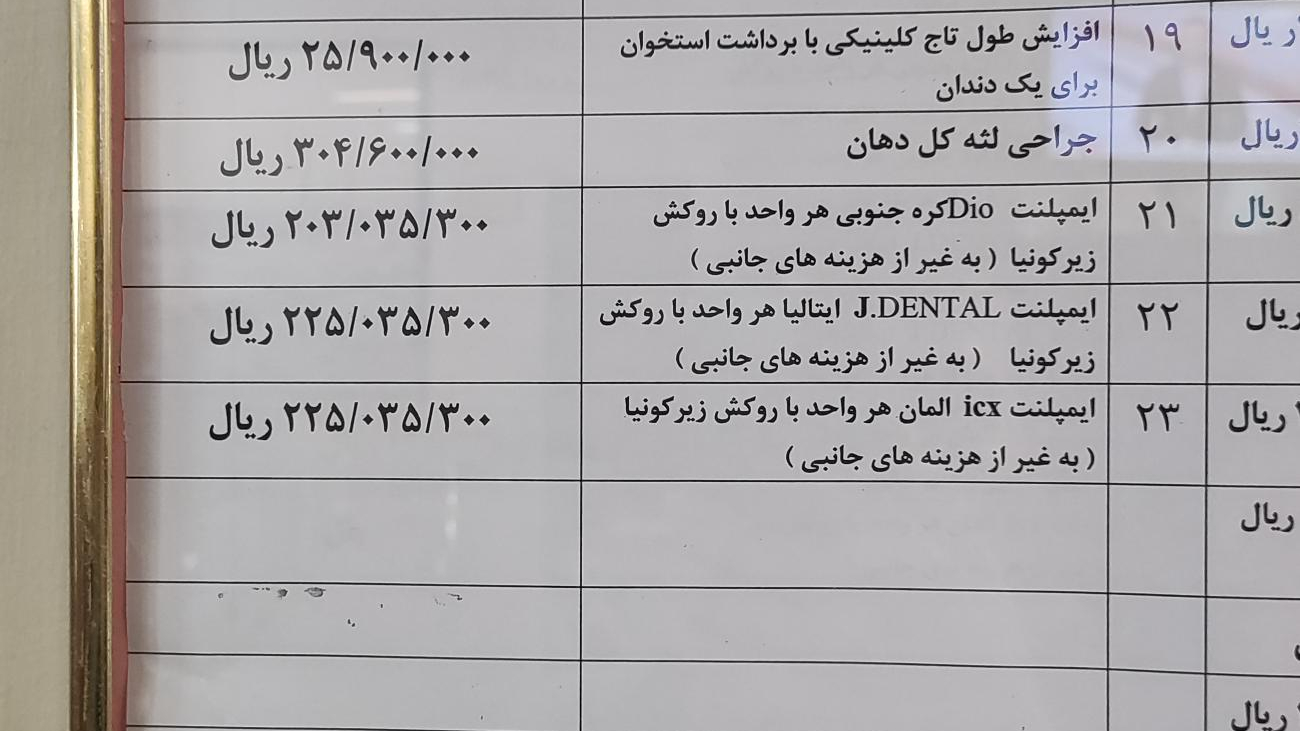 ریال
۱۹
افزایش طول تاج کلینیکی با برداشت استخوان
برای یک دندان
۲۵/۹۰۰/۰۰۰ ریال
ریال
۲۰
جراحی لثه کل دهان
۳۰۴/۶۰۰/۰۰۰ ریال
ریال
۲۱
ایمپلنت Dioکره جنوبی هر واحد با روکش
زیرکونیا ( به غیر از هزینه های جانبی )
۲۰۳/۰۳۵/۳۰۰ ریال
ریال
۲۲
ایمپلنت J.DENTAL ایتالیا هر واحد با روکش
زیرکونیا ( به غیر از هزینه های جانبی )
۲۲۵/۰۳۵/۳۰۰ ریال
ریال
۲۳
ایمپلنت icx المان هر واحد با روکش زیرکونیا
( به غیر از هزینه های جانبی )
۲۲۵/۰۳۵/۳۰۰ ریال
ریال
ریال